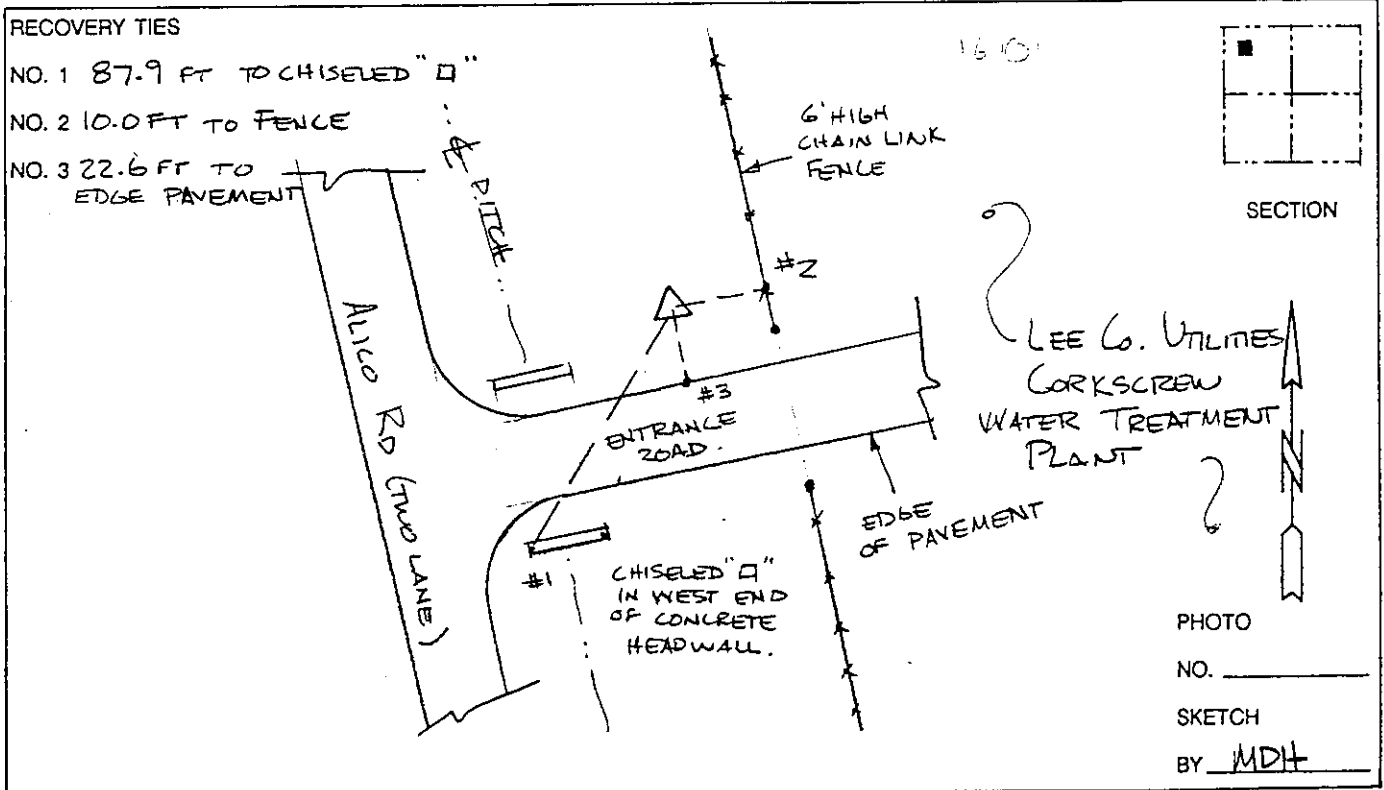 RECOVERY TIES
NO. 1 87.9 FT TO CHISELED "□"
NO. 2 10.0 FT TO FENCE
NO. 3 22.6 FT TO
EDGE PAVEMENT
℄ DITCH
6' HIGH
CHAIN LINK
FENCE
SECTION
#2
ALICO RD (TWO LANE)
#3
ENTRANCE
ROAD.
LEE CO. UTILITIES
CORKSCREW
WATER TREATMENT
PLANT
N
EDGE
OF PAVEMENT
#1
CHISELED "□"
IN WEST END
OF CONCRETE
HEADWALL.
PHOTO
NO.
SKETCH
BY MDH